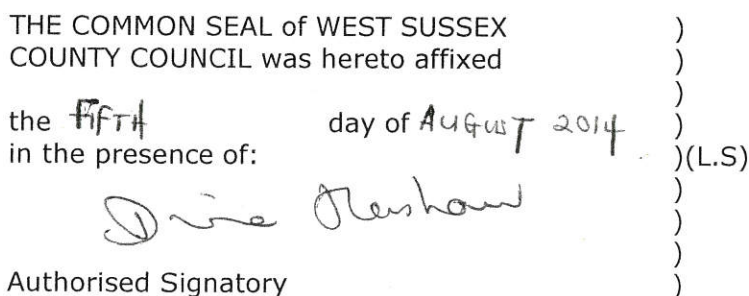 THE COMMON SEAL of WEST SUSSEX )
COUNTY COUNCIL was hereto affixed )
)
the FIFTH day of AUGUST 2014 )
in the presence of: )(L.S)
)
)
)
Authorised Signatory )